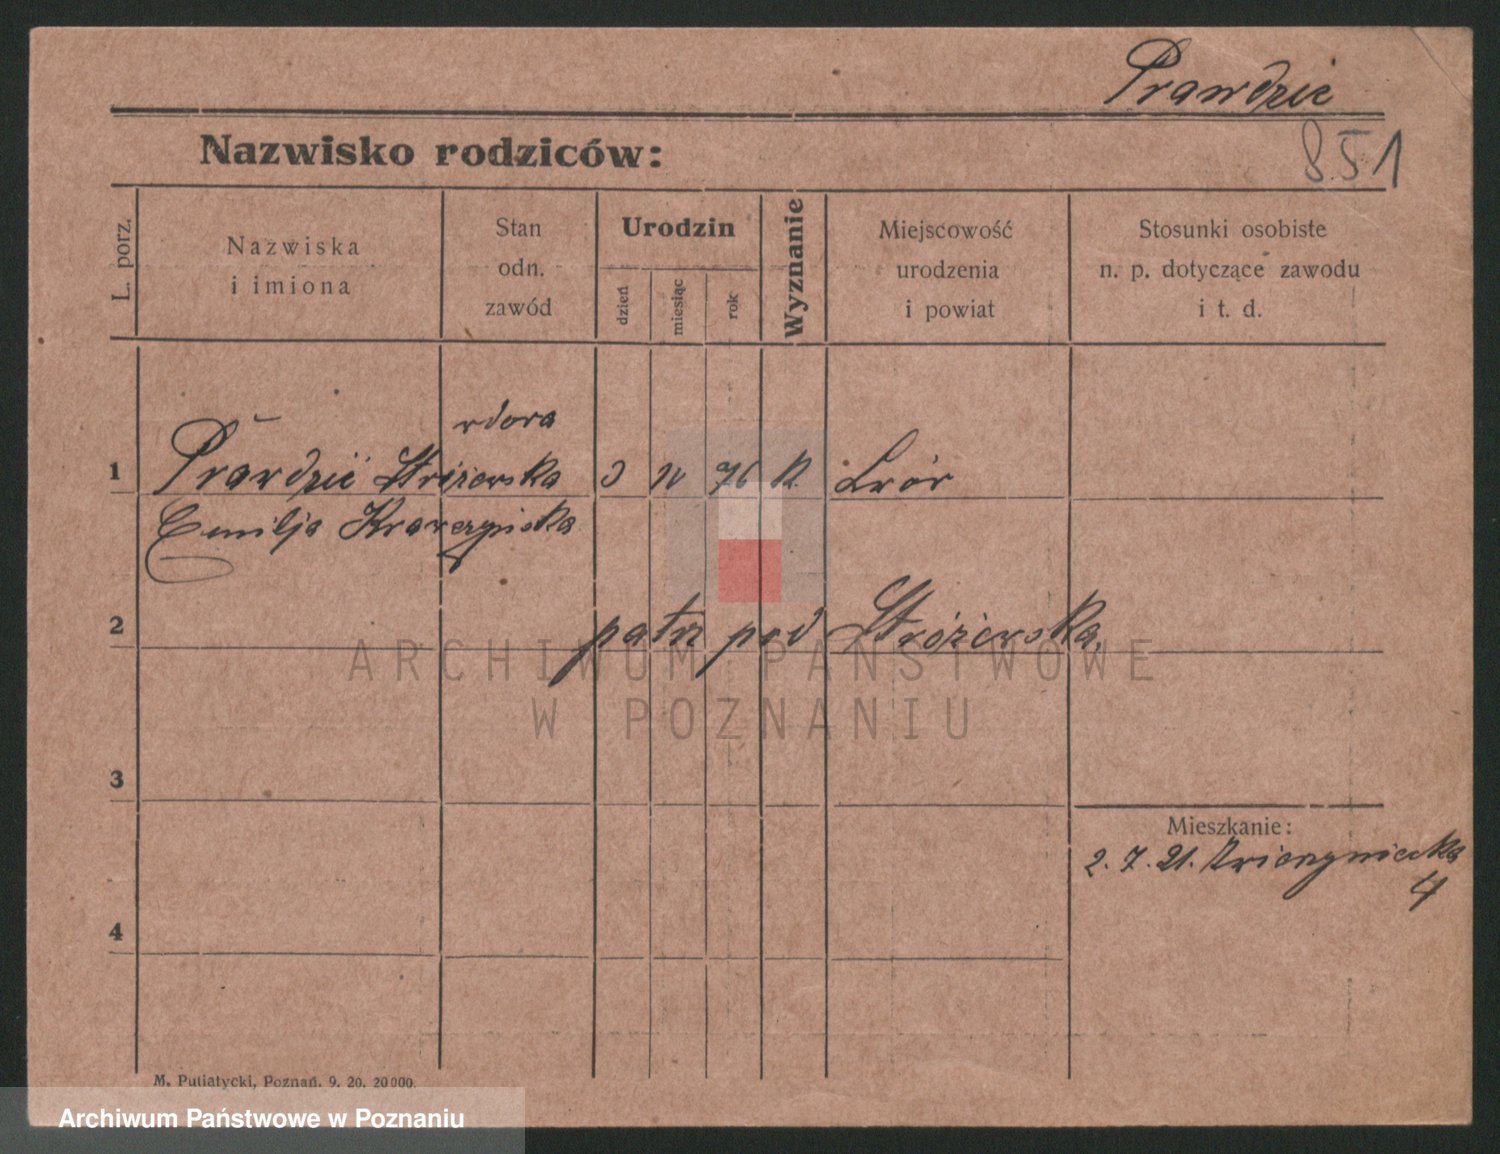 Prawdzic
851
Nazwisko rodziców:
L. porz.
Nazwiska
i imiona
Stan
odn.
zawód
Urodzin
dzień
miesiąc
rok
Wyznanie
Miejscowość
urodzenia
i powiat
Stosunki osobiste
n. p. dotyczące zawodu
i t. d.
wdowa
1 Prawdzic Stróżewska 3 76 K Lwów
Emilja Krawczyńska
2 patrz pod Stróżewska.
ARCHIWUM PAŃSTWOWE
W POZNANIU
3
Mieszkanie:
2. 7. 21. Zwierzyniecka
4
4
M. Putiatycki, Poznań. 9. 20. 20000.
Archiwum Państwowe w Poznaniu